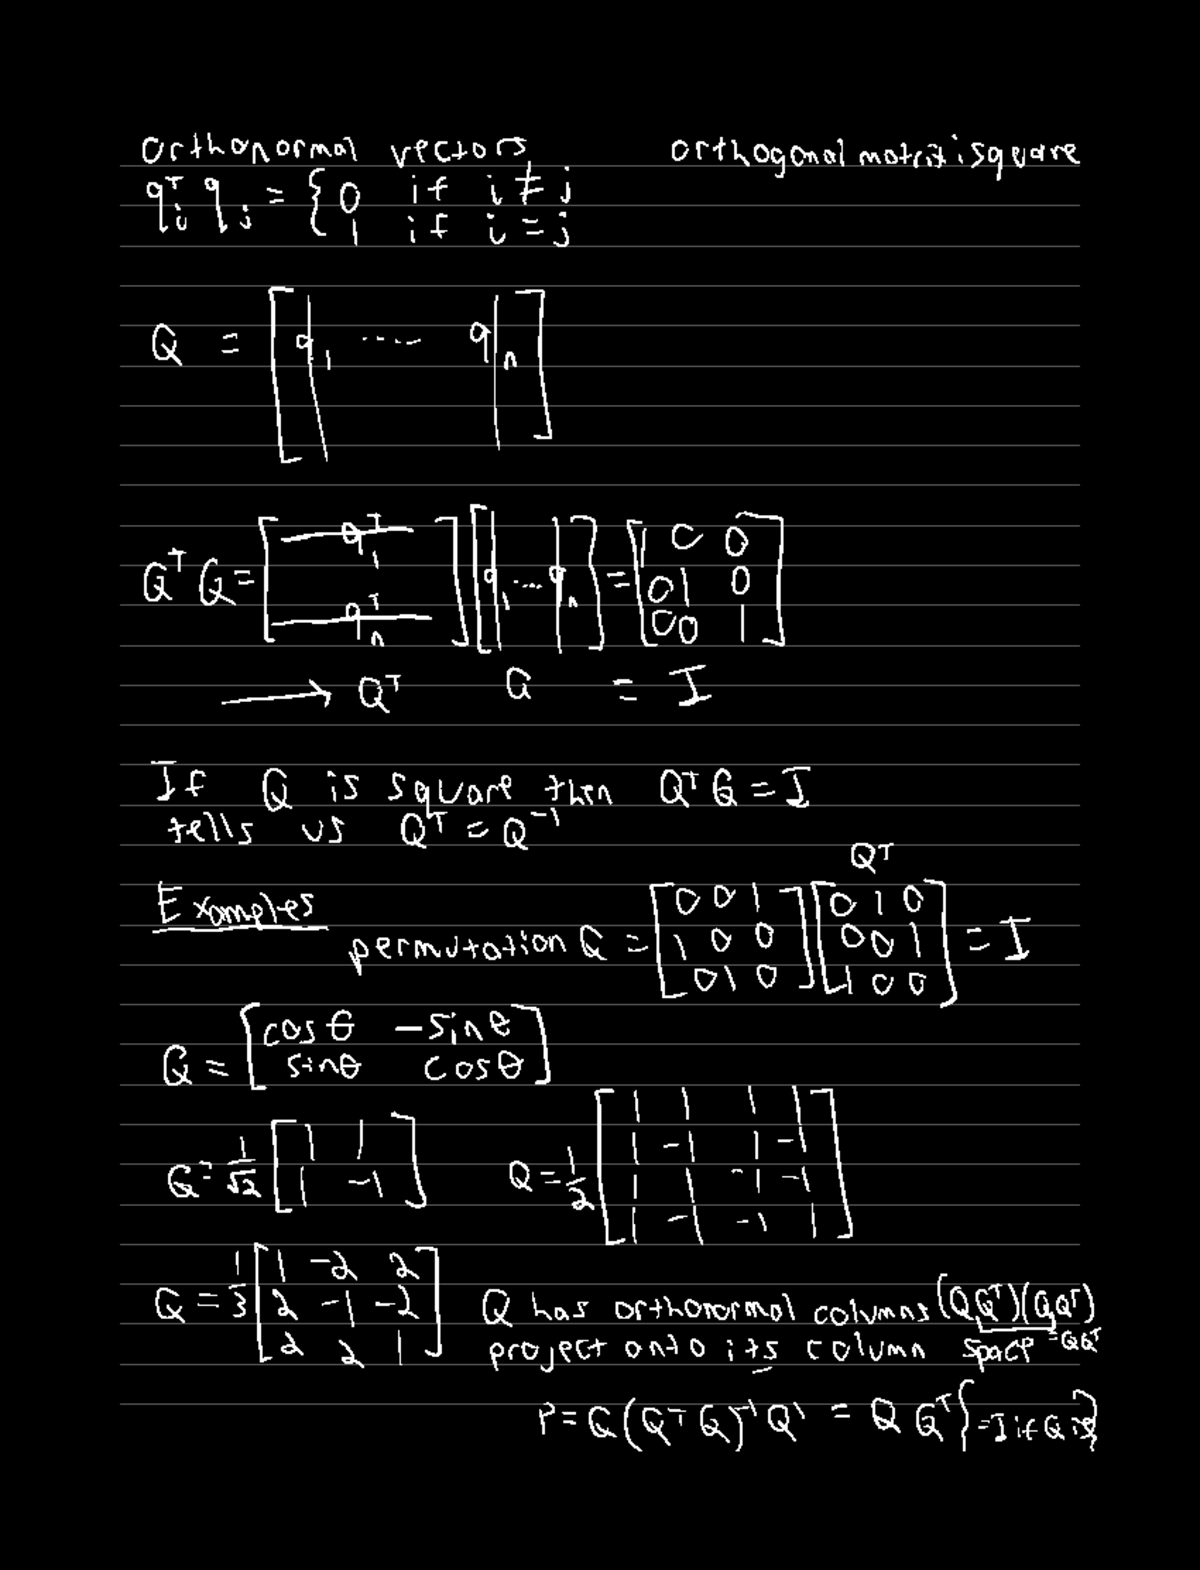 orthonormal vectors
orthogonal matrix: square
qᵢᵀ qⱼ = { 0 if i ≠ j
1 if i = j
Q = [ q₁ ···· qₙ ]
QᵀQ = [ q₁ᵀ qₙᵀ ] [ q₁ ···· qₙ ] = [ 1 0 0
0 1 0
0 0 1 ]
⟶ Qᵀ Q = I
If Q is square then QᵀQ = I
tells us Qᵀ = Q⁻¹
Qᵀ
Examples
permutation Q = [ 0 0 1 ] [ 0 1 0 ]
[ 1 0 0 ] [ 0 0 1 ] = I
[ 0 1 0 ] [ 1 0 0 ]
Q = [ cosθ -sinθ
sinθ cosθ ]
Q = 1/√2 [ 1 1
1 -1 ]
Q = 1/2 [ 1 1 1 1
1 -1 1 -1
1 1 -1 -1
1 -1 -1 1 ]
Q = 1/3 [ 1 -2 2
2 -1 -2
2 2 1 ]
Q has orthonormal columns (QQᵀ)(QQᵀ)
project onto its column space = QQᵀ
P = Q(QᵀQ)⁻¹Q' = QQᵀ { = I if Q is }